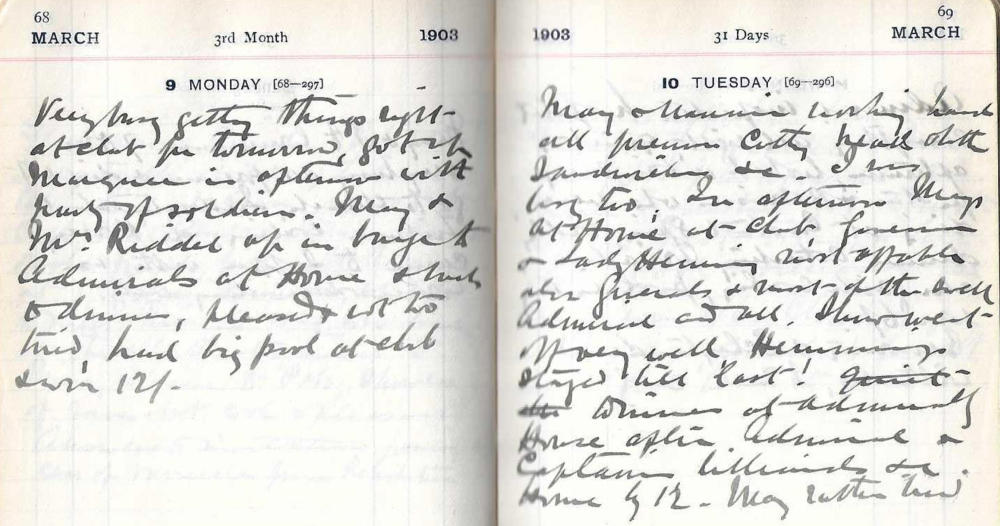 68
MARCH 3rd Month 1903
9 MONDAY [68—297]
Very busy getting things right
at club for tomorrow, got up
Marquee in afternoon with
party of soldiers. May &
Mrs Riddel up in buggy to
Admirals at Home & back
to dinner, pleased & not too
tired had big pool at club
& win 12/-
69
1903 31 Days MARCH
10 TUESDAY [69—296]
May & working hard
all
Sandwiches &c. I was
busy too, In afternoon Mays
At Home at Club Governor
& Lady Hemming most affable
also Generals & most of the
Admiral and all. Show went
off very well Hemmings
stayed till last! Quiet
dinner at Admiralty
House after, Admiral &
Captains billiards &c.
Home by 12 - May rather tired